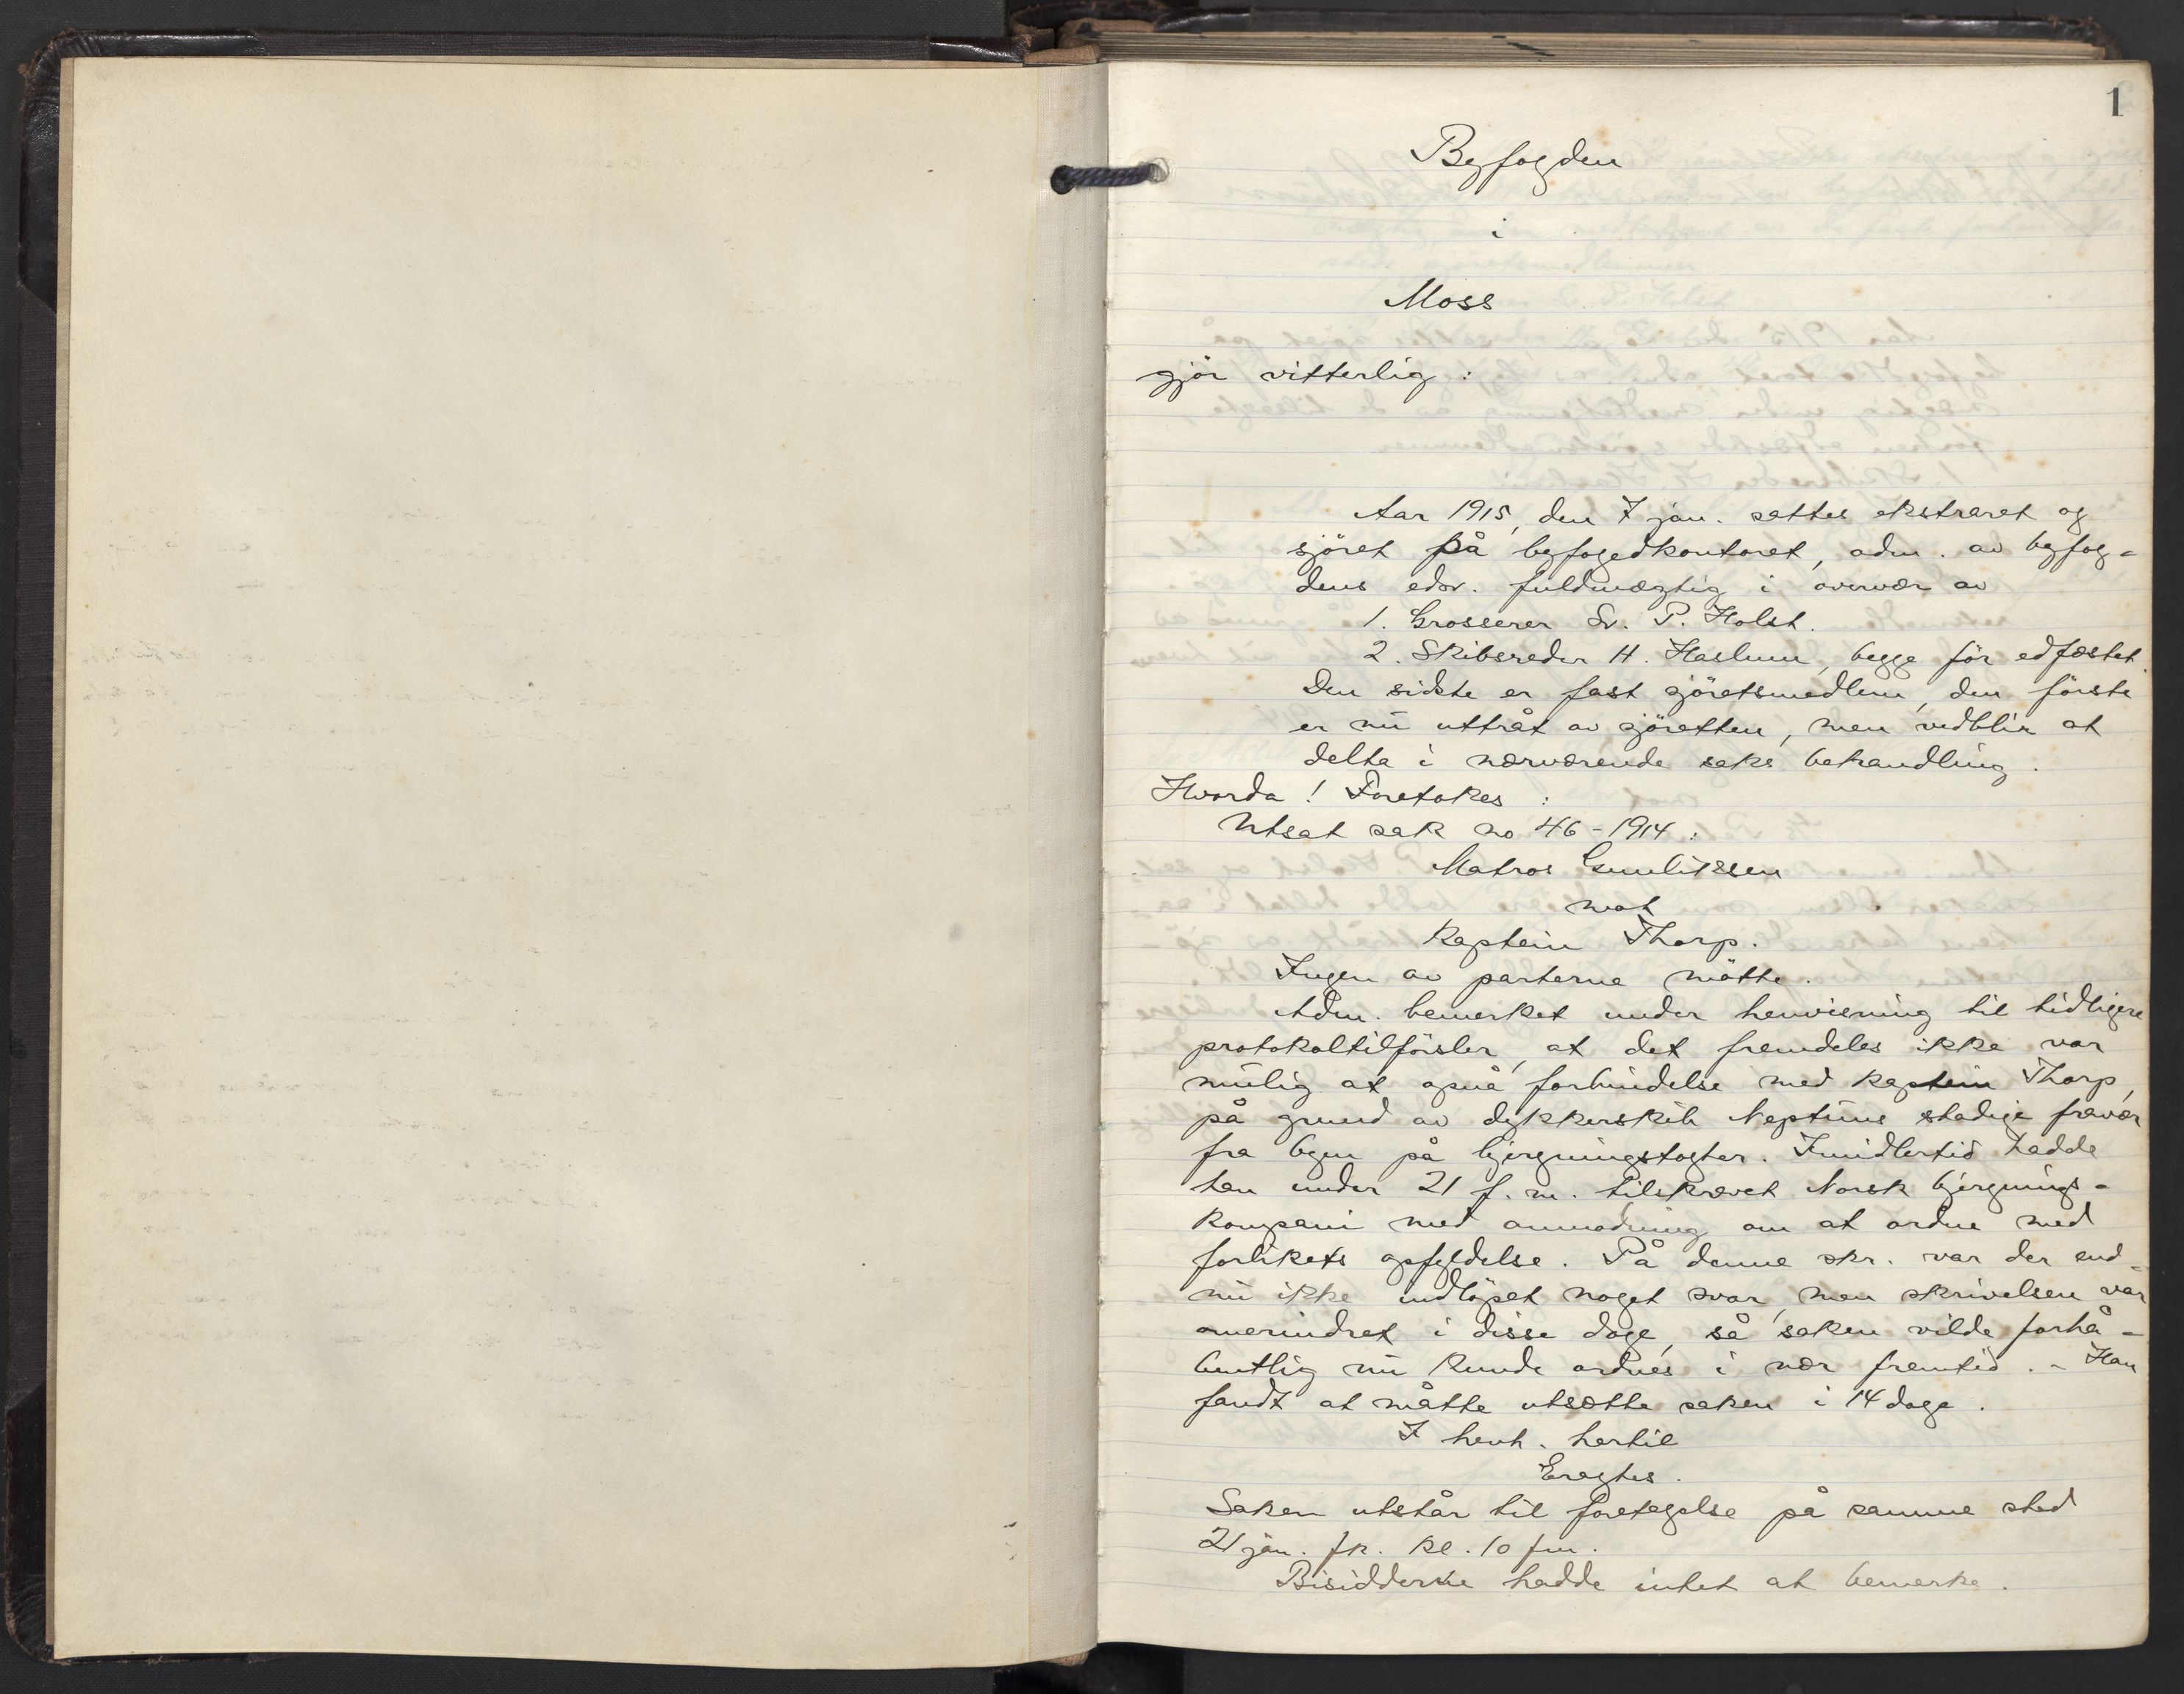 1
Byfogden
i
Moss
gjör vitterlig:
Aar 1915, den 7 jan. sattes ekstraret og
sjöret på byfogedkontoret, adm. av byfog-
dens edsv. fuldmægtig i overvær av
1. Grosserer Sv. P. Holst.
2. Skibsreder H. Haslum, begge för edfæstet.
Den sidste er fast sjöretsmedlem, den förste
er nu uttråt av sjöretten, men vedblir at
delta i nærværende saks behandling.
Hvorda! Foretokes:
Utsat sak no 46-1914:
Matros Gunlikssen
mot
Kaptein Thorp.
Ingen av parterne mötte.
Adm. bemerket under henvisning til tidligere
protokoltilförsler, at det fremdeles ikke var
mulig at opnå forbindelse med kaptein Thorp,
på grund av dykkerskib Neptuns stadige fravær
fra byen på bjergningstogter. Imidlertid hadde
han under 21 f. m. tilskrevet Norsk bjergnings-
kompani med anmodning om at ordne med
forlikets opfyldelse. På denne skr. var der end-
nu ikke indlöpet noget svar, men skrivelsen var
omerindret i disse dage, så saken vilde forhå-
bentlig nu kunde ordnes i nær fremtid. - Han
fandt at måtte utsætte saken i 14 dage.
I henh. hertil
Eragtes.
Saken utstår til foretagelse på samme sted
21 jan. fk. kl. 10 fm.
Bisidderne hadde intet at bemerke.